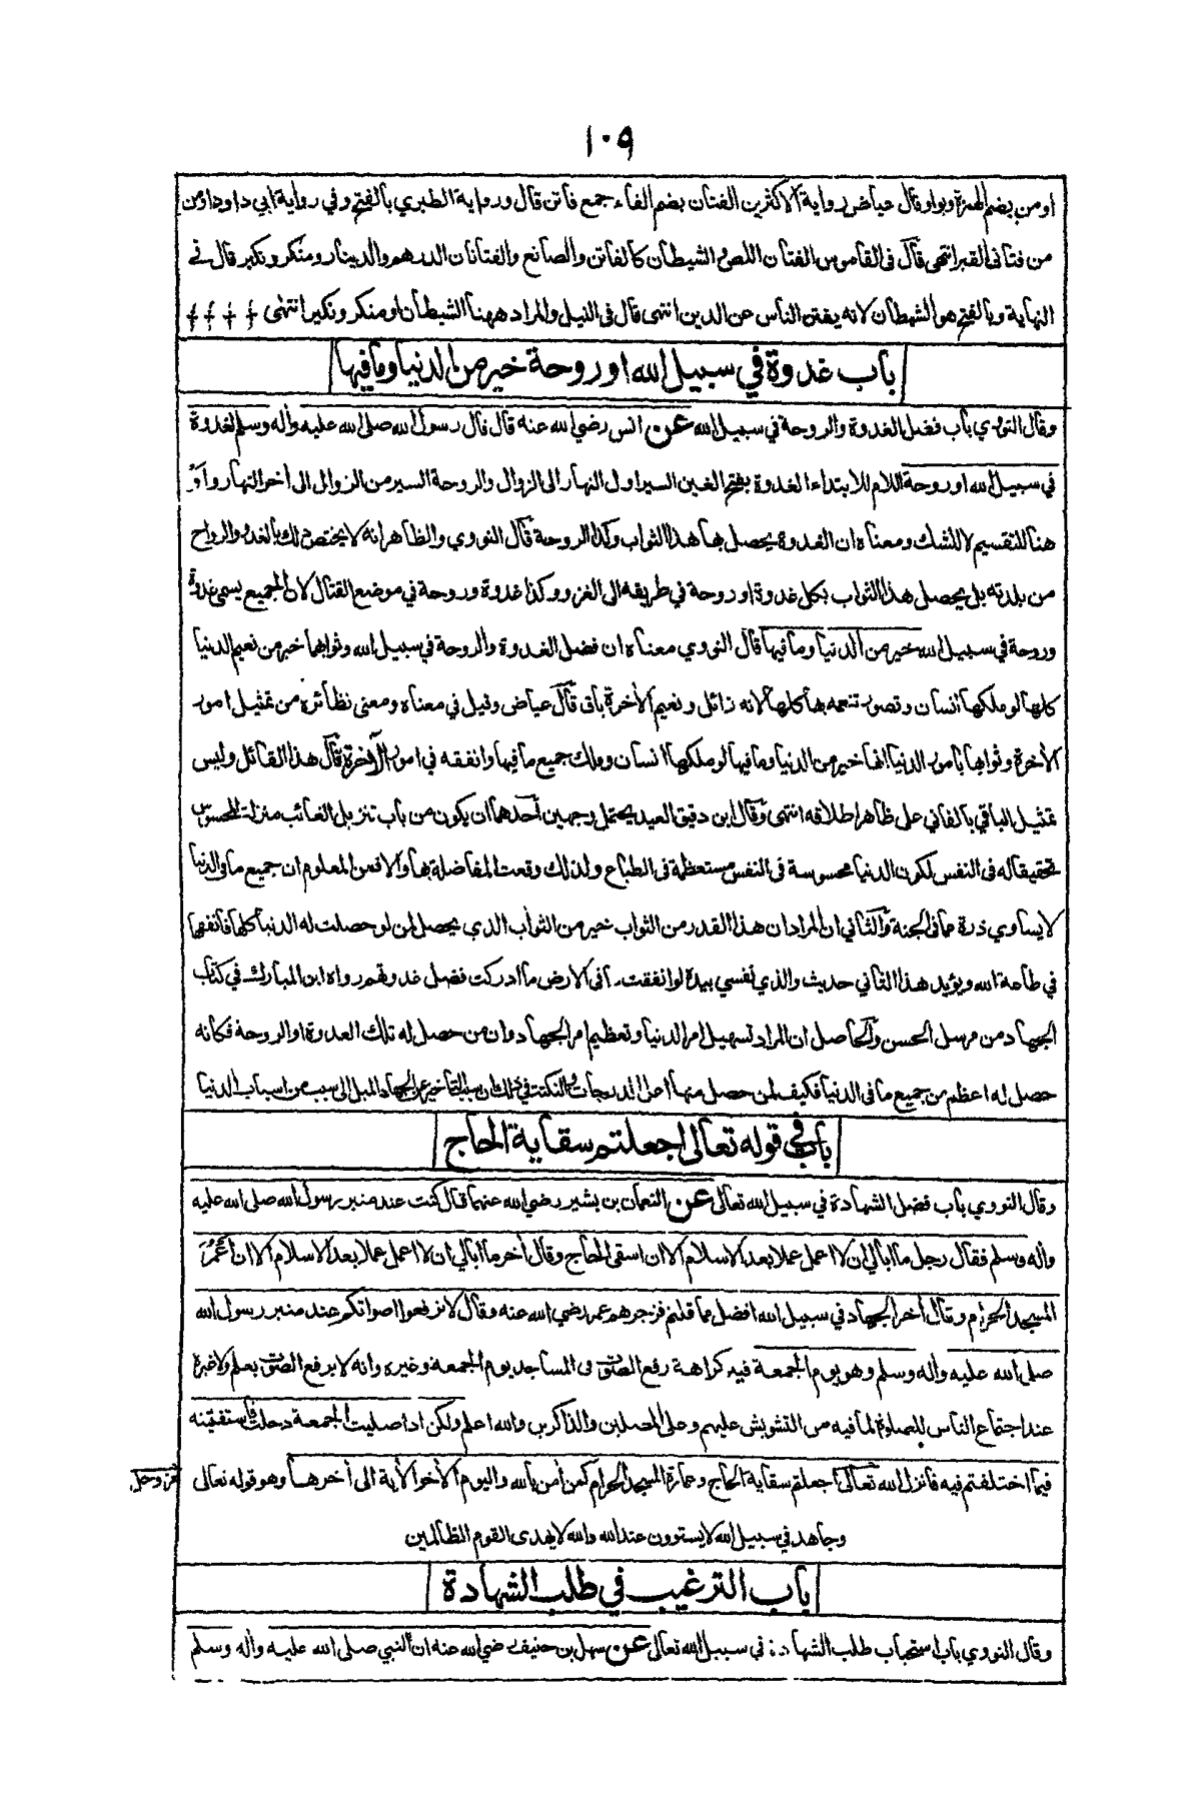 ١٠٩
اومن بضم الهمزة وبواو قال عياض رواية الاكثرين الفتان بضم الفاء جمع فاتن قال ورواية الطبري بالفتح وفي رواية ابي داود اومن
من فتاني القبر انتهى قال في القاموس الفتان اللص والشيطان كالفاتن والصانع والفتانان الدرهم والدينار ومنكر ونكير قال في
النهاية وبالفتح هو الشيطان لانه يفتن الناس عن الدين انتهى قال في النيل والمراد ههنا الشيطان او منكر ونكير انتهى
باب غدوة في سبيل الله او روحة خير من الدنيا وما فيها
وقال النووي باب فضل الغدوة والروحة في سبيل الله عن انس رضي الله عنه قال قال رسول الله صلى الله عليه وآله وسلم لغدوة
في سبيل الله او روحة اللام للابتداء الغدوة بفتح الغين السير اول النهار الى الزوال والروحة السير من الزوال الى آخر النهار واو
هنا للتقسيم لا للشك ومعناه ان الغدوة يحصل بها هذا الثواب وكذا الروحة قال النووي والظاهر انه لا يختص ذلك بالغدو والرواح
من بلدته بل يحصل هذا الثواب بكل غدوة او روحة في طريقه الى الغزو وكذا غدوة وروحة في موضع القتال لان الجميع يسمى غدوة
وروحة في سبيل الله خير من الدنيا وما فيها قال النووي معناه ان فضل الغدوة والروحة في سبيل الله وثوابهما خير من نعيم الدنيا
كلها لو ملكها انسان وتصور تنعمه بها كلها لانه زائل ونعيم الآخرة باق قال عياض وقيل في معناه ومعنى نظائره من تمثيل امور
الآخرة وثوابها بامور الدنيا انها خير من الدنيا وما فيها لو ملكها انسان وملك جميع ما فيها وانفقه في امور الآخرة قال هذا القائل وليس
تمثيل الباقي بالفاني على ظاهر اطلاقه انتهى وقال ابن دقيق العيد يحتمل وجهين احدهما ان يكون من باب تنزيل الغائب منزلة المحسوس
تحقيقا له في النفس لكون الدنيا محسوسة في النفس مستعظمة في الطباع ولذلك وقعت المفاضلة بها والا فمن المعلوم ان جميع ما في الدنيا
لا يساوي ذرة مما في الجنة والثاني ان المراد ان هذا القدر من الثواب خير من الثواب الذي يحصل لمن لو حصلت له الدنيا كلها فانفقها
في طاعة الله ويؤيد هذا الثاني حديث والذي نفسي بيده لو انفقت ما في الارض ما ادركت فضل غدوتهم رواه ابن المبارك في كتاب
الجهاد من مرسل الحسن والحاصل ان المراد تسهيل امر الدنيا وتعظيم امر الجهاد وان من حصل له تلك الغدوة او الروحة فكانه
حصل له اعظم من جميع ما في الدنيا فكيف لمن حصل منها اعلى الدرجات والنكتة في ذلك ان سبب التاخير عن الجهاد الميل الى سبب من اسباب الدنيا
باب في قوله تعالى اجعلتم سقاية الحاج
وقال النووي باب فضل الشهادة في سبيل الله تعالى عن النعمان بن بشير رضي الله عنهما قال كنت عند منبر رسول الله صلى الله عليه
وآله وسلم فقال رجل ما ابالي ان لا اعمل عملا بعد الاسلام الا ان اسقي الحاج وقال آخر ما ابالي ان لا اعمل عملا بعد الاسلام الا ان أعمُرَ
المسجد الحرام وقال آخر الجهاد في سبيل الله افضل مما قلتم فزجرهم عمر رضي الله عنه وقال لا ترفعوا اصواتكم عند منبر رسول الله
صلى الله عليه وآله وسلم وهو يوم الجمعة فيه كراهة رفع الصوت في المساجد يوم الجمعة وغيره وانه لا يرفع الصوت بعلم ولا غيره
عند اجتماع الناس للصلوة لما فيه من التشويش عليهم وعلى المصلين والذاكرين والله اعلم ولكن اذا صليت الجمعة دخلت فاستفتيته
فيما اختلفتم فيه فانزل الله تعالى اجعلتم سقاية الحاج وعمارة المسجد الحرام كمن آمن بالله واليوم الآخر الآية الى آخرها وهو قوله تعالى
عز وجل
وجاهد في سبيل الله لا يستوون عند الله والله لا يهدى القوم الظالمين
باب الترغيب في طلب الشهادة
وقال النووي باب استحباب طلب الشهادة في سبيل الله تعالى عن سهل بن حنيف رضي الله عنه ان النبي صلى الله عليه وآله وسلم